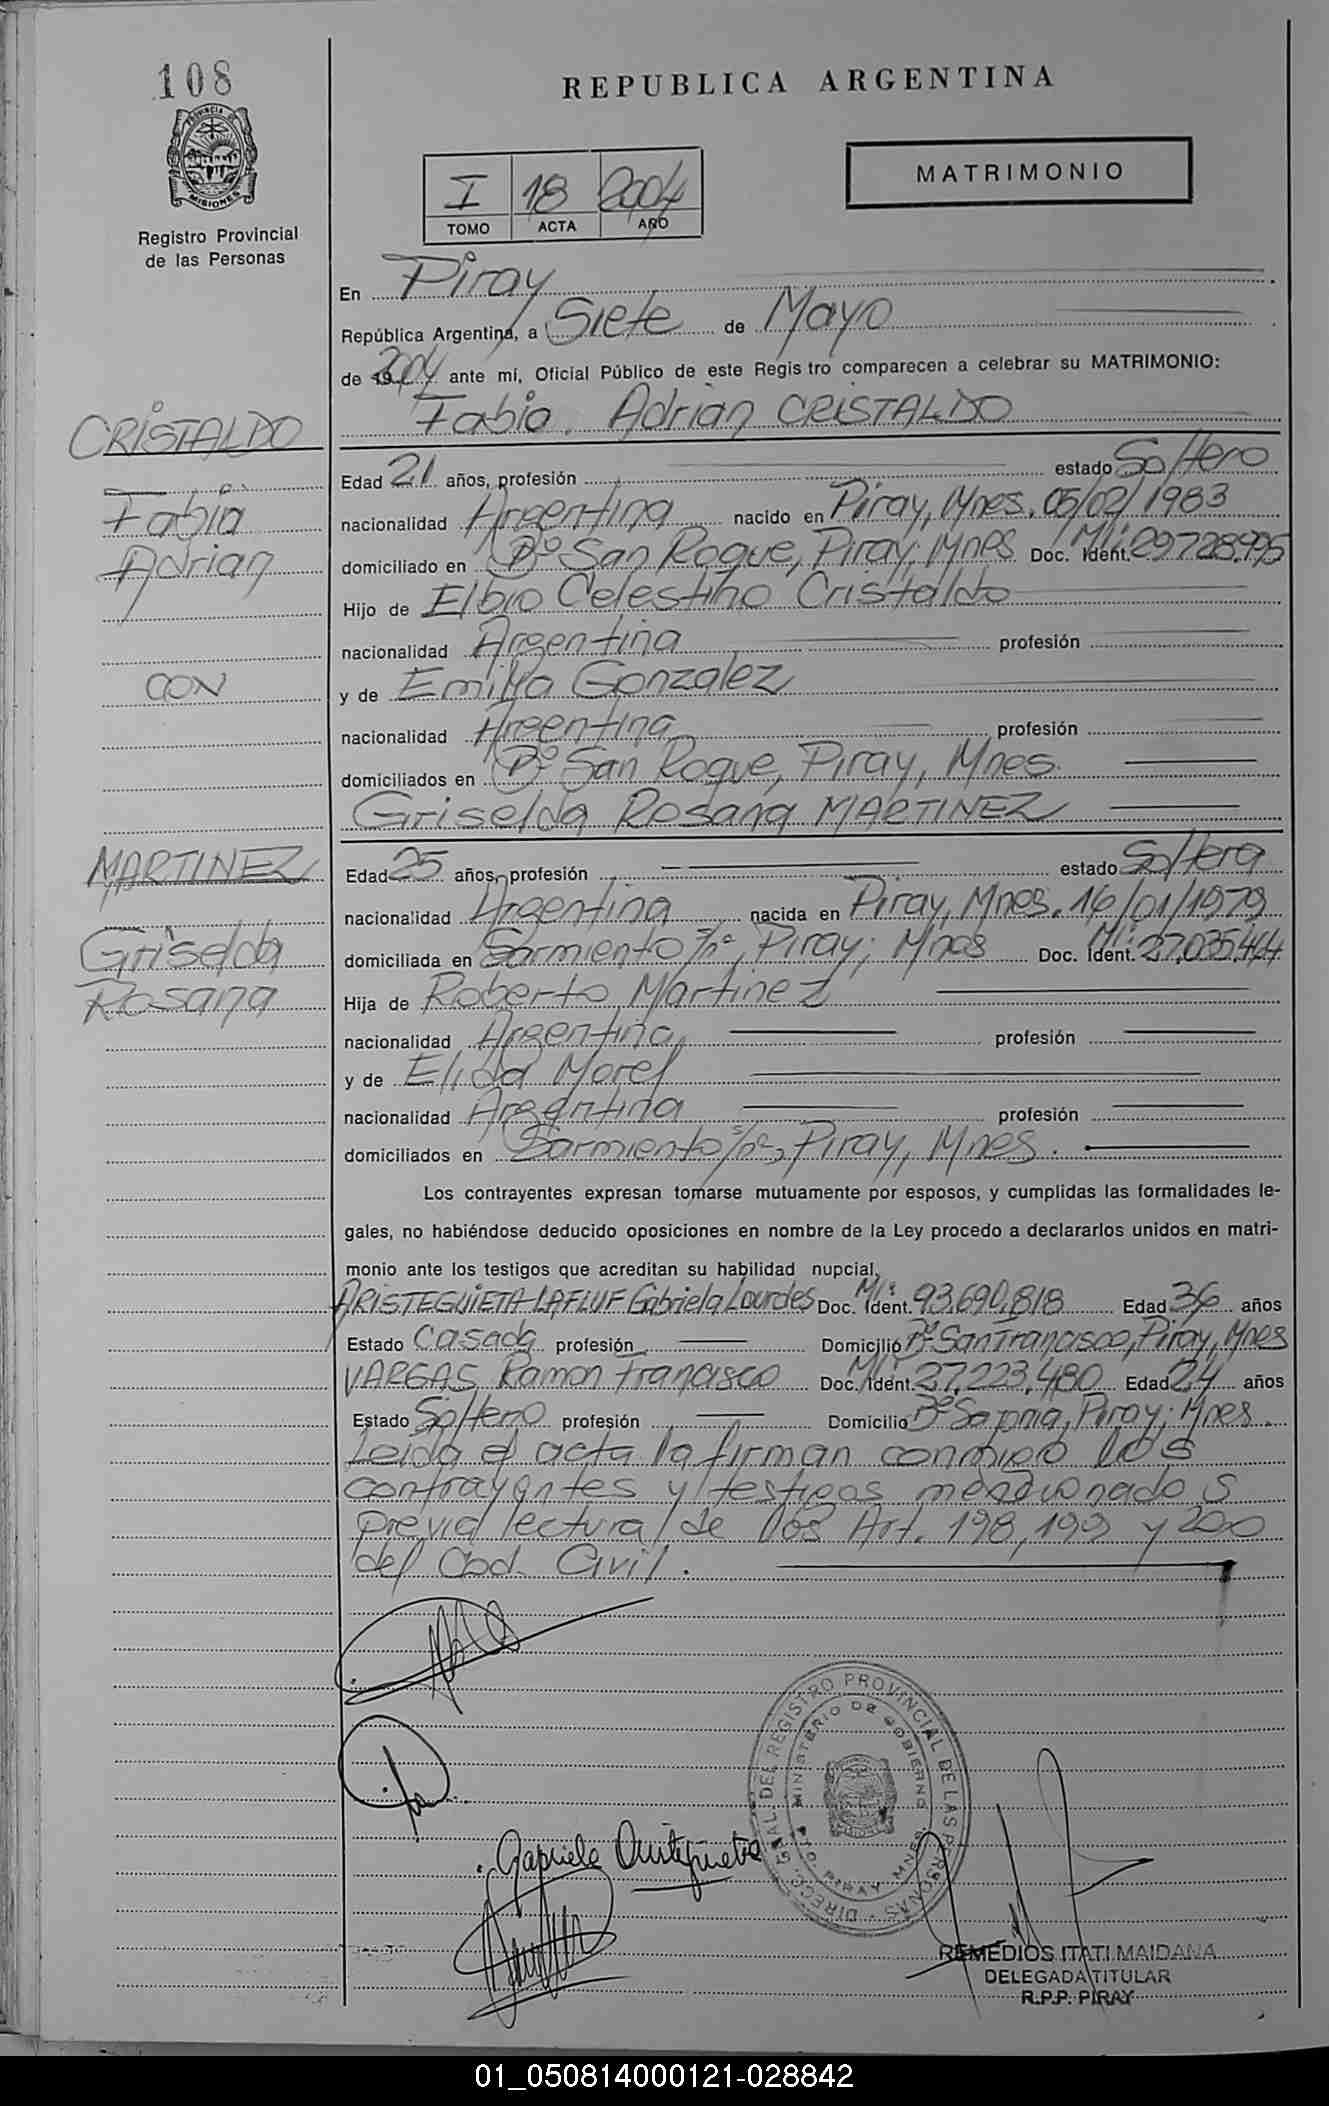 108
REPUBLICA ARGENTINA
PROVINCIA DE
MISIONES
Registro Provincial
de las Personas
I 18 2004
TOMO ACTA AÑO
MATRIMONIO
En Piray
República Argentina, a Siete de Mayo
de 19 2004 ante mí, Oficial Público de este Regis tro comparecen a celebrar su MATRIMONIO:
CRISTALDO
Fabio Adrian CRISTALDO
Edad 21 años, profesión estado Soltero
Fabio
nacionalidad Argentina nacido en Piray, Mnes. 05/02/1983
Adrian
domiciliado en Bº San Roque, Piray, Mnes Doc. Ident. MI: 29728.995
Hijo de Elbio Celestino Cristaldo
nacionalidad Argentina profesión
CON
y de Emilia Gonzalez
nacionalidad Argentina profesión
domiciliados en Bº San Roque, Piray, Mnes.
Griselda Rosana MARTINEZ
MARTINEZ
Edad 25 años, profesión estado Soltera
nacionalidad Argentina nacida en Piray, Mnes. 16/01/1979
Griselda
domiciliada en Sarmiento s/nº, Piray, Mnes Doc. Ident. MI: 27.035.464
Rosana
Hija de Roberto Martinez
nacionalidad Argentina profesión
y de Elida Morel
nacionalidad Argentina profesión
domiciliados en Sarmiento s/nº, Piray, Mnes.
Los contrayentes expresan tomarse mutuamente por esposos, y cumplidas las formalidades le-
gales, no habiéndose deducido oposiciones en nombre de la Ley procedo a declararlos unidos en matri-
monio ante los testigos que acreditan su habilidad nupcial,
ARISTEGUIETA LAFLUF Gabriela Lourdes Doc. Ident. MI: 93.690.818 Edad 36 años
Estado Casada profesión Domicilio Bº San Francisco, Piray, Mnes
VARGAS Ramon Francisco Doc. Ident. MI: 27.223.480 Edad 24 años
Estado Soltero profesión Domicilio Bº Piray, Mnes.
Leida el acta la firman conmigo los
contrayentes y testigos mencionados
previa lectura de los Art. 198, 199 y 200
del Cod. Civil.
DIRECC. GRAL. DEL REGISTRO PROVINCIAL DE LAS PERSONAS
MINISTERIO DE GOBIERNO
PTO. PIRAY MNES.
Gabriela Aristeguieta
REMEDIOS ITATI MAIDANA
DELEGADA TITULAR
R.P.P. PIRAY
01_050814000121-028842